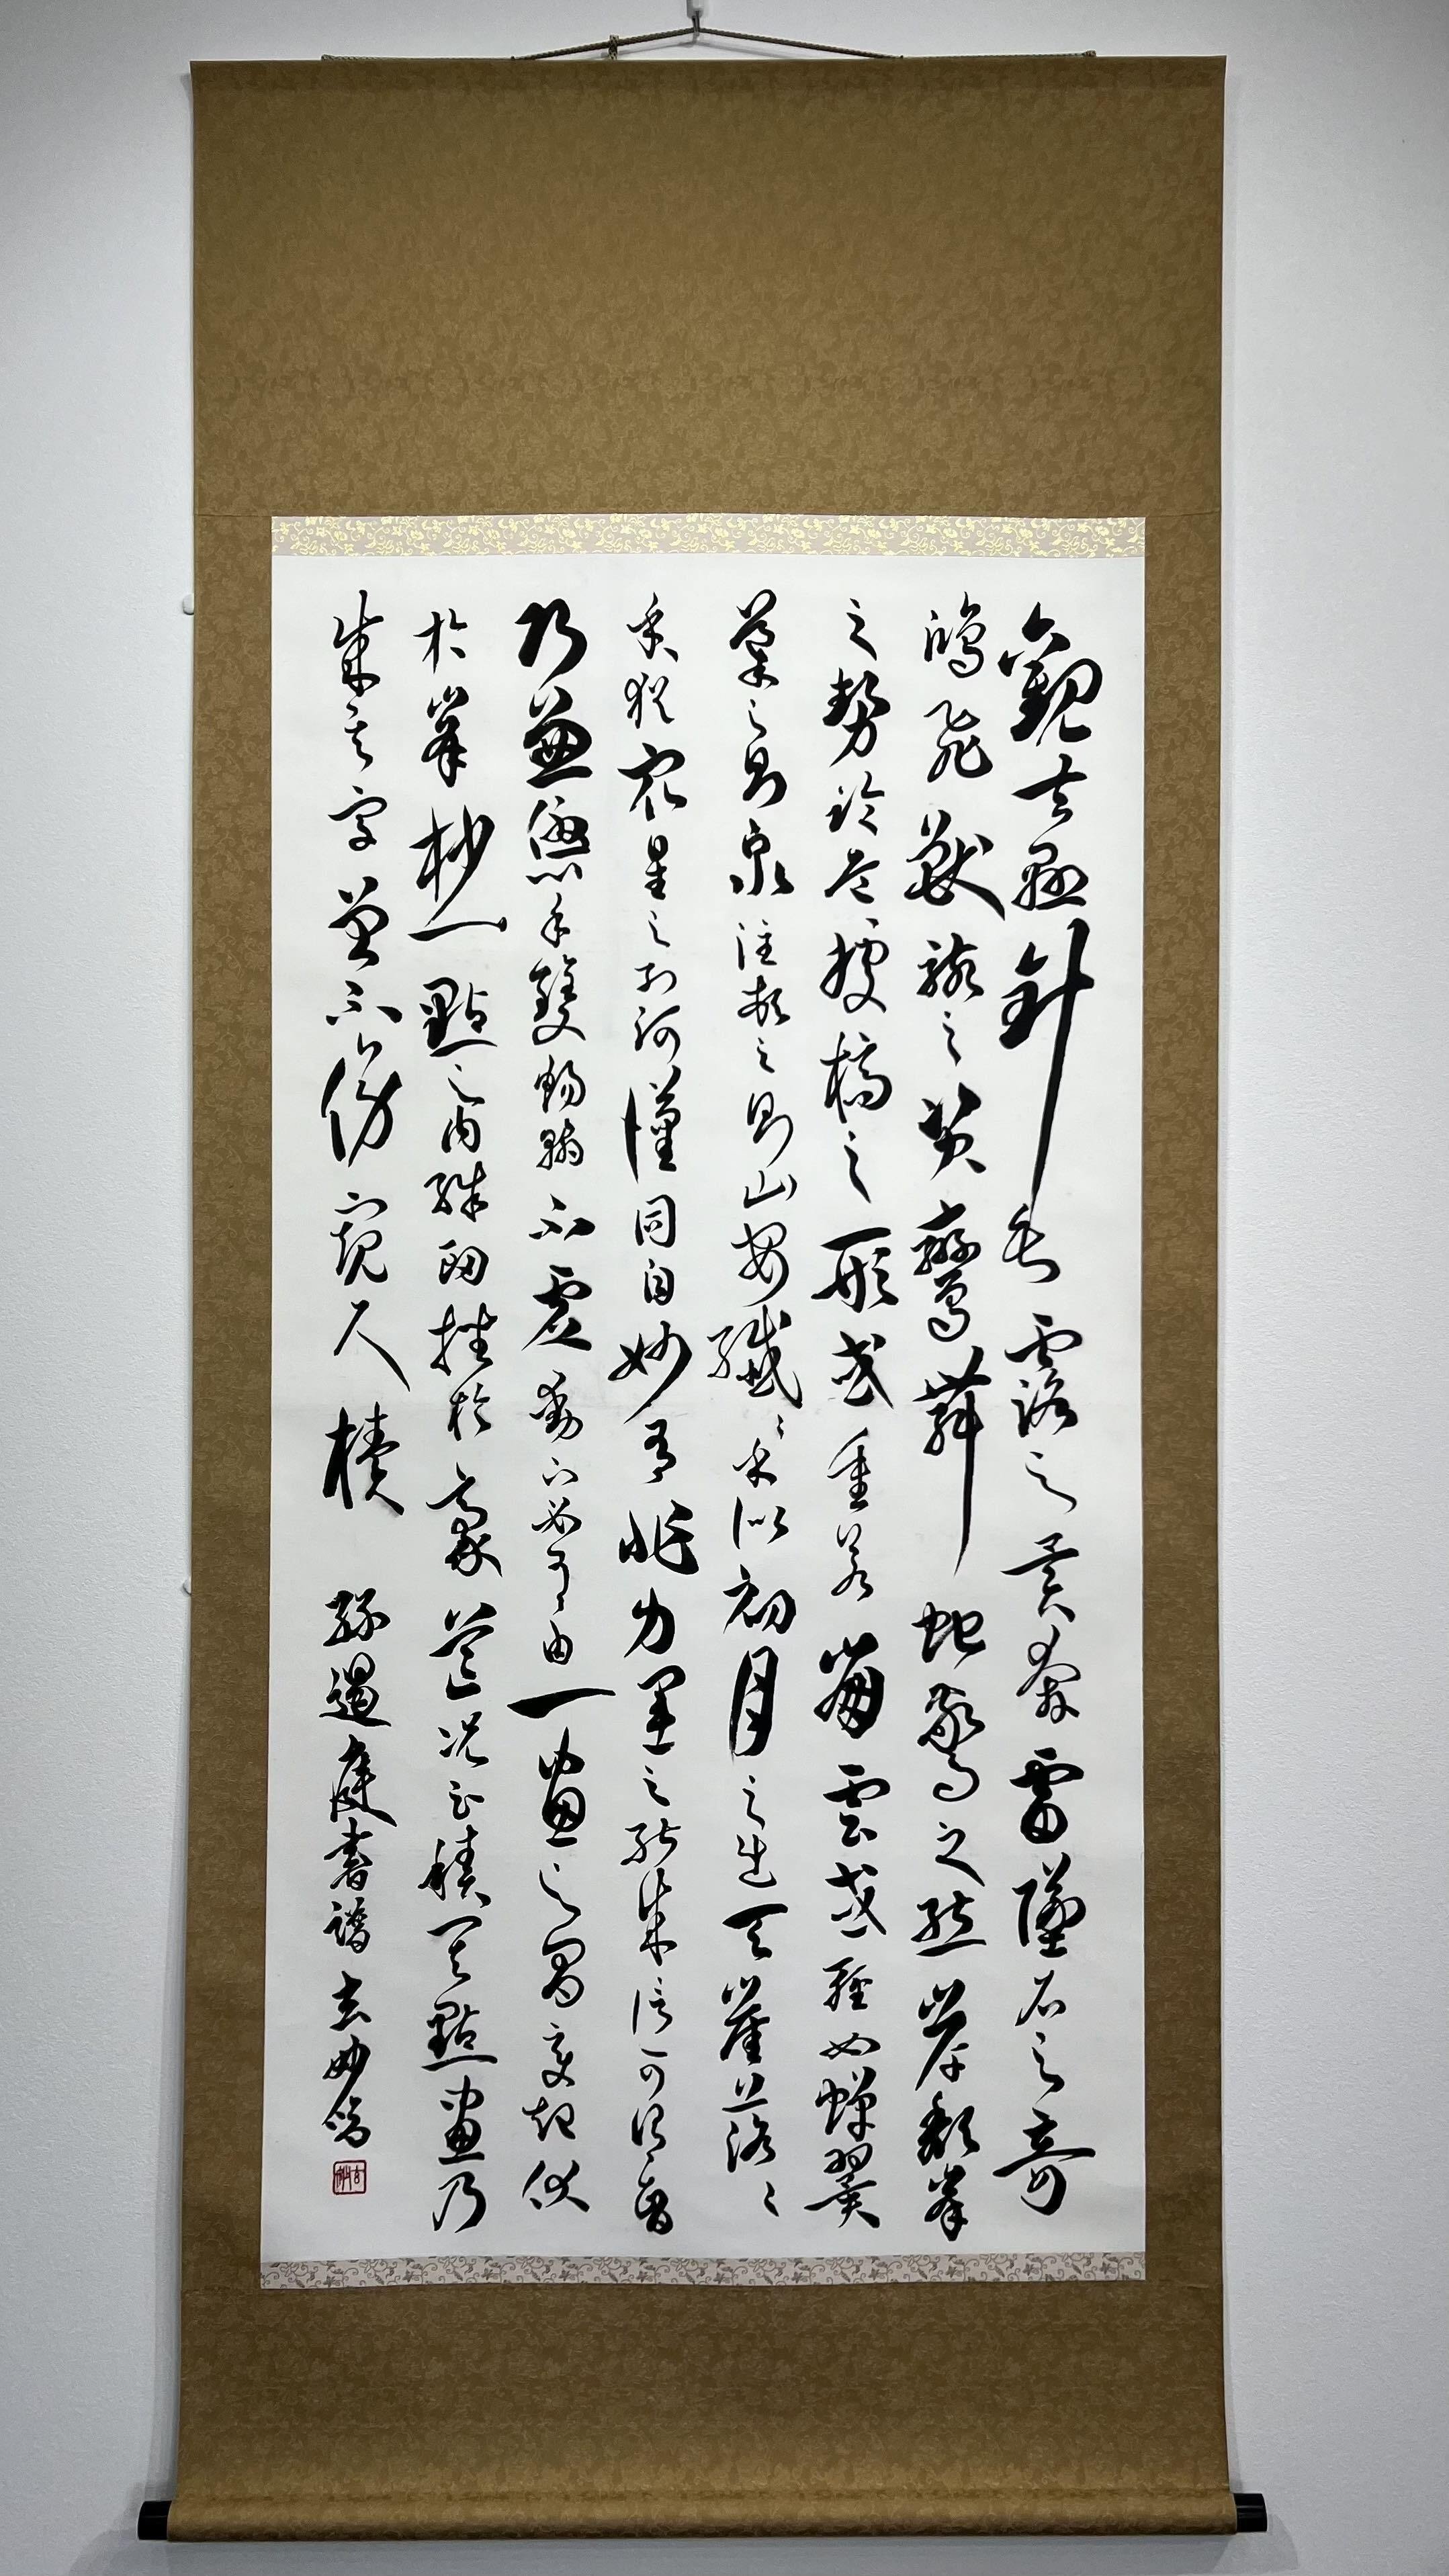 觀夫懸針垂露之異奔雷墜石之奇
鴻飛獸駭之資鸞舞蛇驚之態岸頹峯
之勢臨危據槁之形或重若崩雲或輕如蟬翼
導之則泉注頓之則山安纖〻乎似初月之出天崖落〻
乎猶衆星之列河漢同自妙有非力運之能成信可謂智
巧兼優心手雙暢翰不虛動下必有由一畫之間變起伏
於峯杪一點之內殊衄挫於豪芒況云積其點畫乃
成其字曾不傍窺尺櫝 孫過庭書譜 玄妙